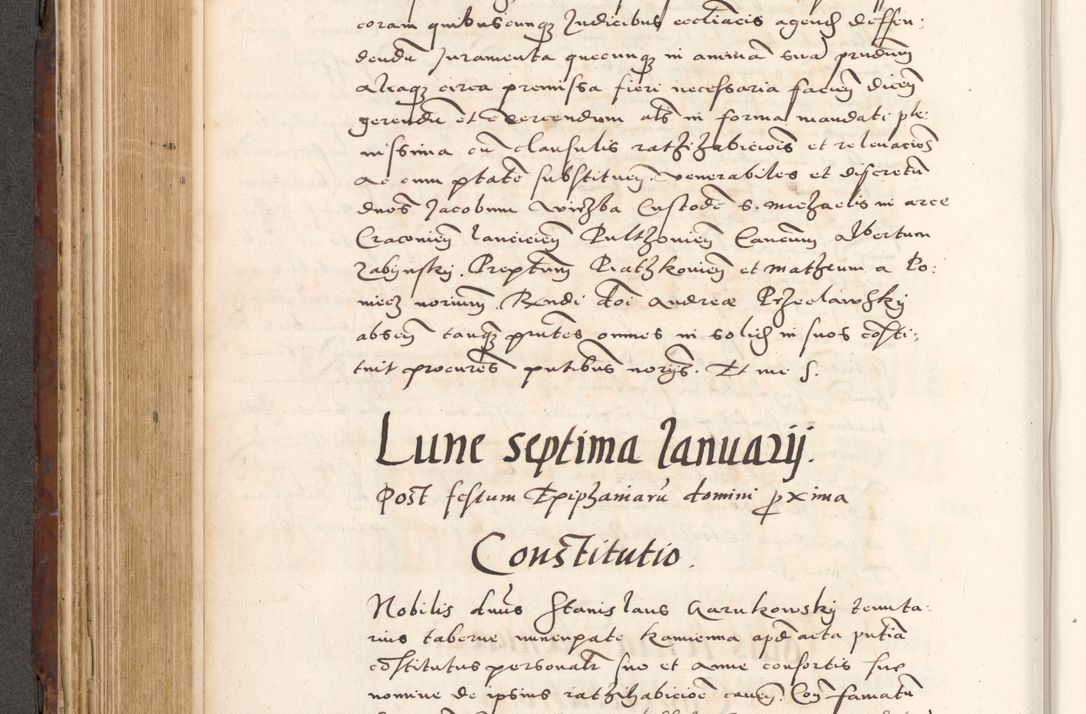 coram quibuscunq₃ Judicibus eccliacis agend deffen:
dendū Juramenta quecunq₃ in animā suā prndum
Aliaq₃ circa premissa fieri necessaria faciend dicend
gerendū et exercendum als in forma mandati ple:
nissima cū clausulis rathihabiciois et relevaciois
Ac cum ptate substituendi venerabiles et discretū
dnos Jacobum Wirzba Custodē S. Michaelis in arce
Craconien Lancicien Pultovien Canicum Albertum
Zabynsky. Preptum Ratzkovien et Matheum a Po:
niecz notium. Rndi dni Andreæ Przeclawsky
absen tanq₃ pntes omnes in solid in suos cosTi:
tuit procures pntibus notys. Et me S.
Lune septima Januarij.
Post festum Epiphaniarū domini proxima
Constitutio.
Nobilis dnus Stanislaus Garnkowsky tenuta:
rius taberne nuncupate Kamienna apd acta pntia
costitutus personalr suo et Anne consortis sue
nomine de ipsius rathihabicioe caven Con famatū